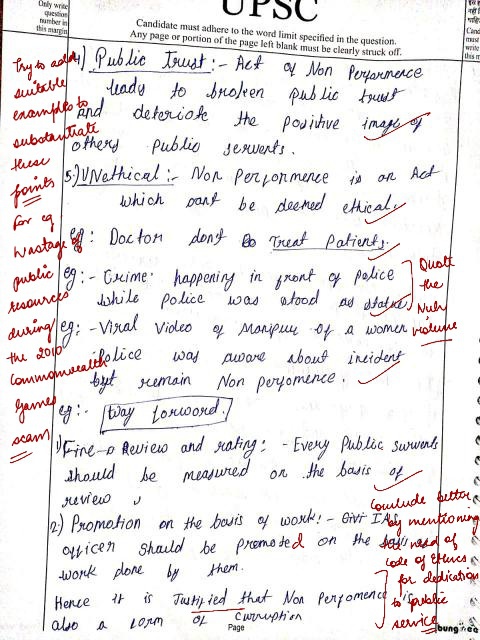 Only write
question
number in
this margin
UPSC
Candidate must adhere to the word limit specified in the question.
Any page or portion of the page left blank must be clearly struck off.
4) Public Trust :- Act of Non Performence
leads to broken public trust
and deteriote the positive image of
others public servents.
5.) UNethical :- Non Performence is an Act
which cant be deemed ethical.
eg: Doctor don't Treat Patients.
eg :- Crime happening in front of police
while police was stood as statue
eg :- Viral Video of Manipur of a women
police was aware about incident
but remain Non perfomence.
eg :-
Way forword.
1) Fine Review and rating: - Every Public survents
should be measured on the basis of
review
2) Promotion on the basis of work :- Givi IAS
officer should be promoted on the basis
work done by them.
Hence it is Justified that Non Perfomence is
also a form of curruption
Try to add
suitable
examples to
substantiate
these
points
For eg
Wastage of
public
resources
during
the 2010
Commonwealth
Games
scam
Quote
the
Nuh
violence
Conclude better
by mentioning
the need of
code of Ethics
for dedication
to public
service
Page